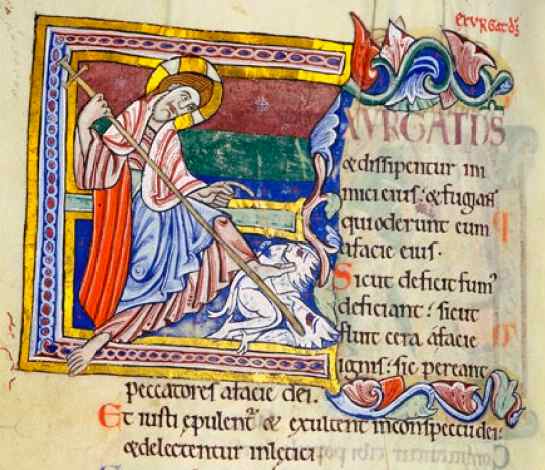 exvrgat ds
EXVRGAT DS
& dissipentur ini
mici eius: & fugiant
qui oderunt eum
a facie eius.
Sicut deficit fumꝰ
deficiant: sicut
fluit cera a facie
ignis: sic pereant
peccatores a facie dei.
Et iusti epulent᷑ & exultent in conspectu dei:
& delectentur in leticia